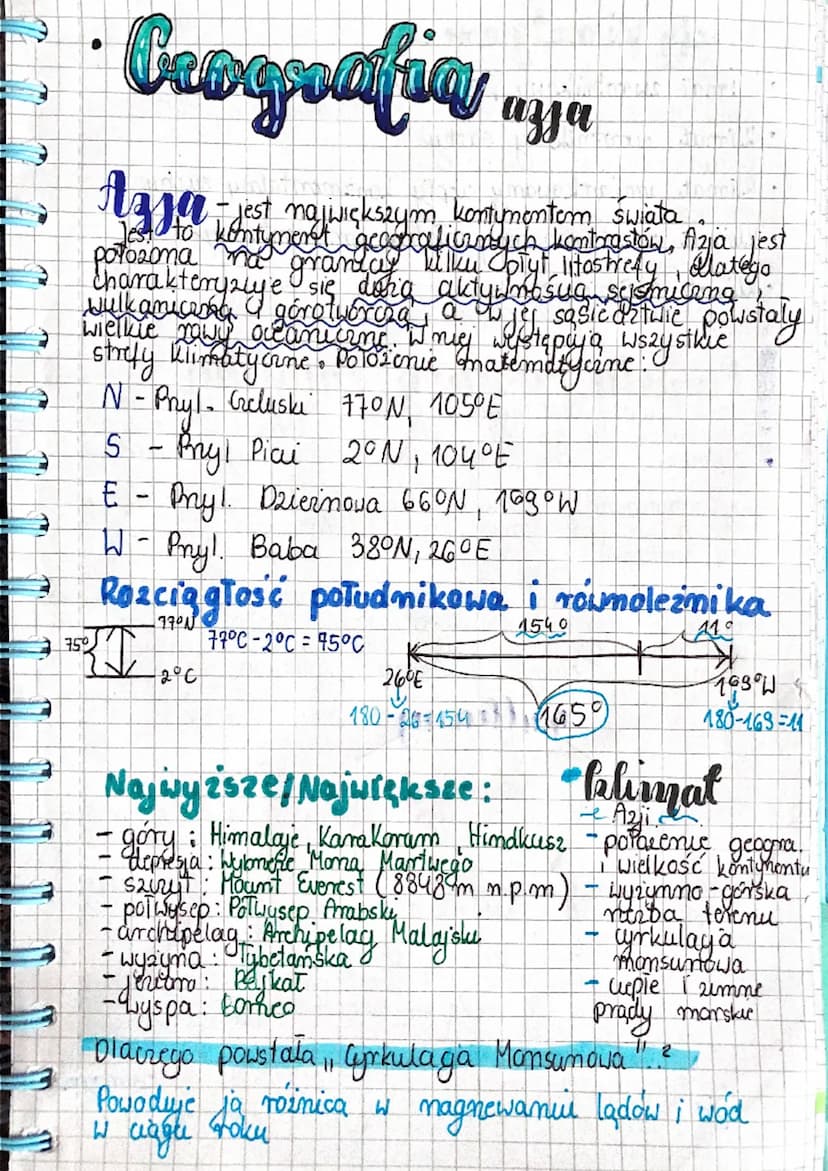 • Geografia azja
Azja - jest największym kontynentem świata.
Jest to kontynent geograficznych kontrastów, Azja jest
położona na granicy kilku płyt litosfery, dlatego
charakteryzuje się dużą aktywnością sejsmiczną,
wulkaniczną i górotwórczą, a w jej sąsiedztwie powstały
wielkie rowy oceaniczne. W niej występują wszystkie
strefy klimatyczne. Położenie matematyczne:
N - Przyl. Czeluski 77°N, 105°E
S - Przyl Piai 2°N, 104°E
E - Przyl. Dzieżniowa 66°N, 169°W
W - Przyl. Baba 38°N, 26°E
Rozciągłość południkowa i równoleżnika
75° 77°N 77°C-2°C = 75°C 2°C
154° 11°
26°E 169°W
180-26=154 165° 180-169=11
Najwyższe/Największe:
- góry: Himalaje, Karakorum, Hindukusz
- depresja: Wybrzeże Morza Martwego
- szczyt: Mount Everest (8848m n.p.m)
- półwysep: Półwysep Arabski
- archipelag: Archipelag Malajski
- wyżyna: Tybetańska
- jezioro: Bajkał
- Wyspa: Borneo
• klimat
Azji
- położenie geogra.
i wielkość kontynentu
- wyżynno-górska
rzeźba terenu
- cyrkulacja
monsunowa
- ciepłe i zimne
prądy morskie
Dlaczego powstała „Cyrkulacja Monsunowa"..?
Powoduje ją różnica w nagrzewaniu lądów i wód
w ciągu roku